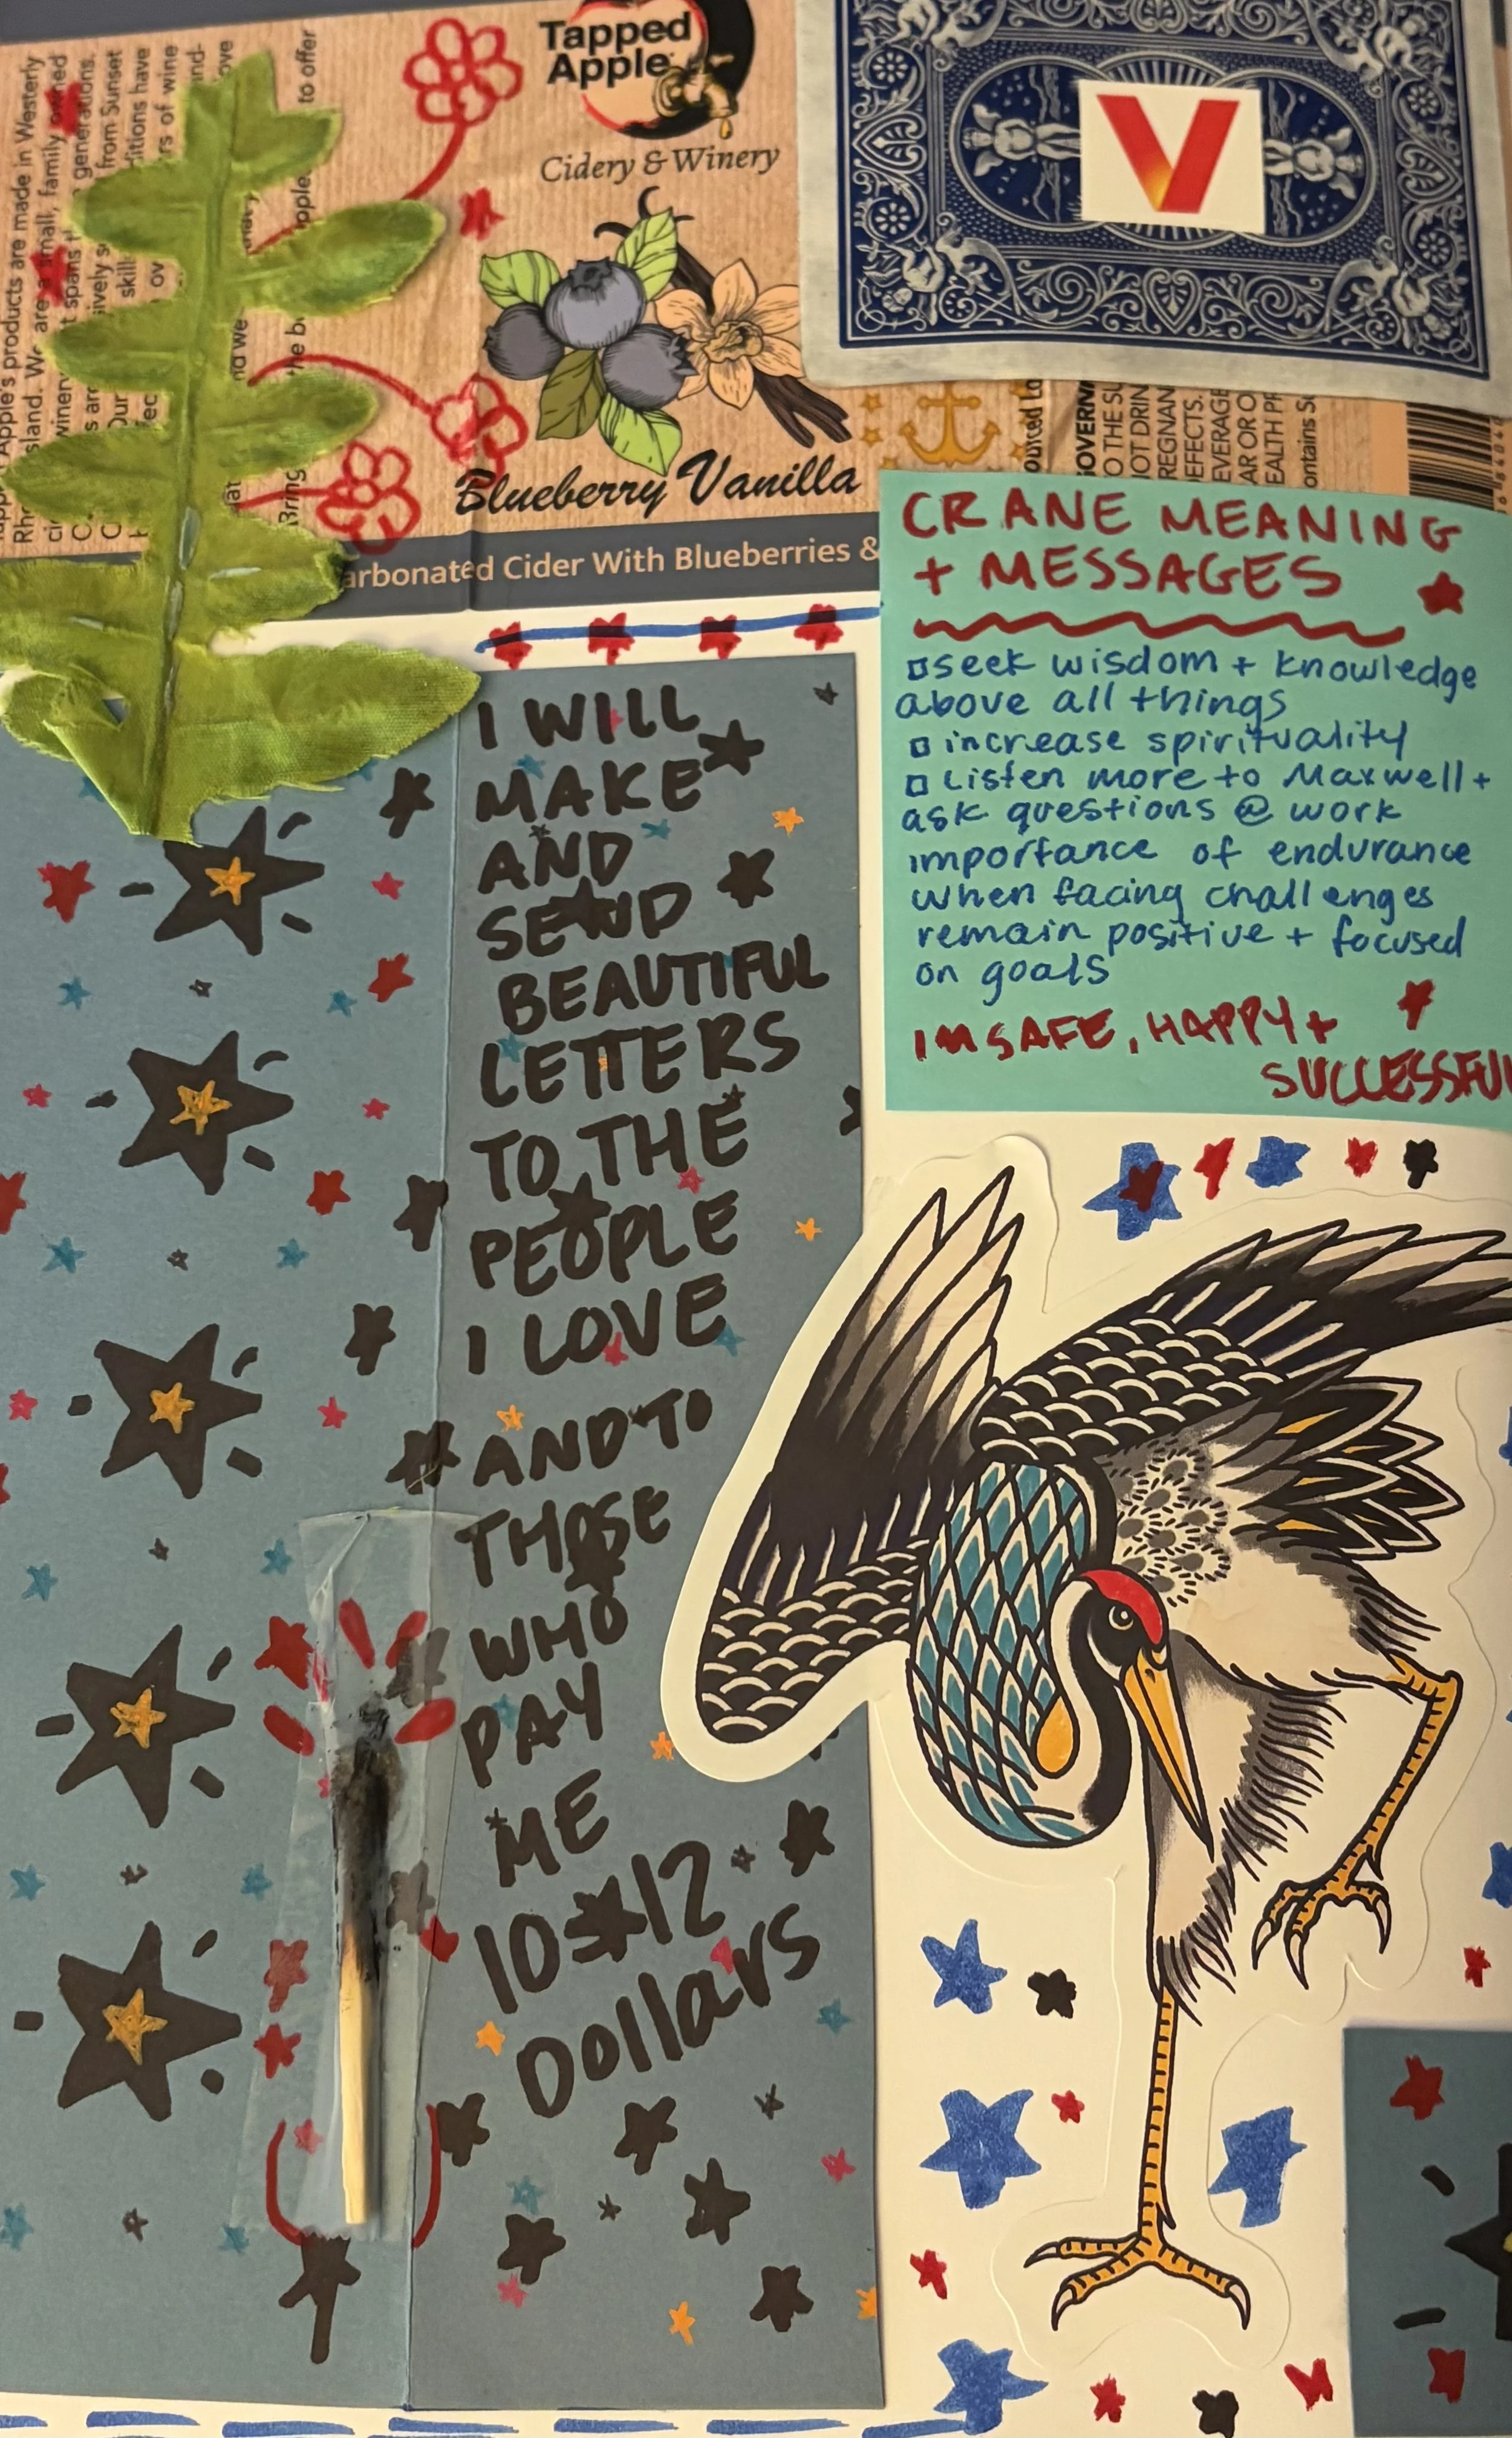 Tapped
Apple
Cidery & Winery
Blueberry Vanilla
arbonated Cider With Blueberries &
Apple's products are made in Westerly
sland. We are a small, family owned
winer t spans generations.
from Sunset
ditions have
rs of wine
to offer
V
CRANE MEANING
+ MESSAGES
seek wisdom + knowledge
above all things
increase spirituality
Listen more to Maxwell +
ask questions @ work
importance of endurance
when facing challenges
remain positive + focused
on goals
IM SAFE, HAPPY +
SUCCESSFUL
I WILL
MAKE
AND
SEND
BEAUTIFUL
LETTERS
TO THE
PEOPLE
I LOVE
AND TO
THOSE
WHO
PAY
ME
10-12
Dollars